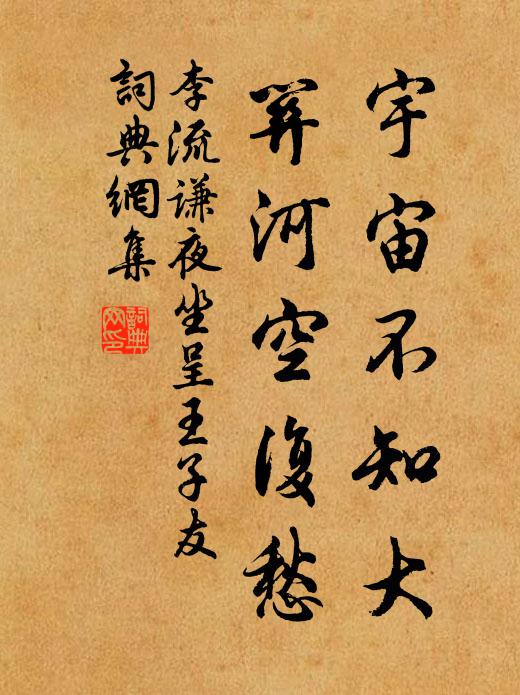 宇宙不知大
關河空復愁
李流謙夜坐呈王子友
詞典網集
詞典網印